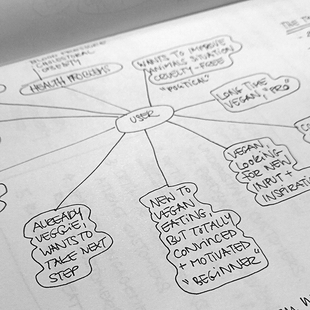 HEALTH PROBLEMS
WANTS TO IMPROVE
ANIMALS SITUATION
CRUELTY-FREE
"POLITICAL"
LONG TIME
VEGAN, "PRO"
USER
VEGAN,
LOOKING
FOR NEW
INPUT +
INSPIRATI
ALREADY
VEGGIE,
WANTS TO
TAKE NEXT
STEP
NEW TO
VEGAN
EATING,
BUT TOTALLY
CONVINCED
+ MOTIVATED
"BEGINNER"